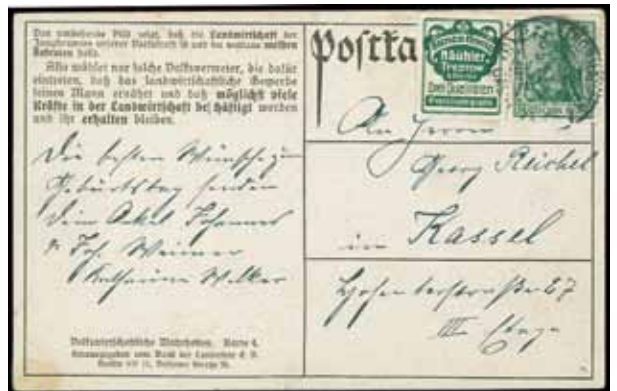 Das umstehende Bild zeigt, daß die Landwirtschaft der
Jungbrunnen unserer Volkskraft ist und die weitaus meisten
Soldaten stellt.
Also wählet nur solche Volksvertreter, die dafür
eintreten, daß das landwirtschaftliche Gewerbe
seinen Mann ernährt und daß möglichst viele
Kräfte in der Landwirtschaft beschäftigt werden
und ihr erhalten bleiben.
Die besten Wünsche zum
Geburtstag senden
Dein Onkel Johannes
Joh. Weimer
Katharina Welker
Volkswirtschaftliche Wahrheiten. Karte 4.
Herausgegeben vom Bund der Landwirte
Berlin SW 11, Dessauer Straße
Postka
Häuhler
Treptow
bei Berlin
An Herrn
Georg Reichel
in Kassel
27
III Etage